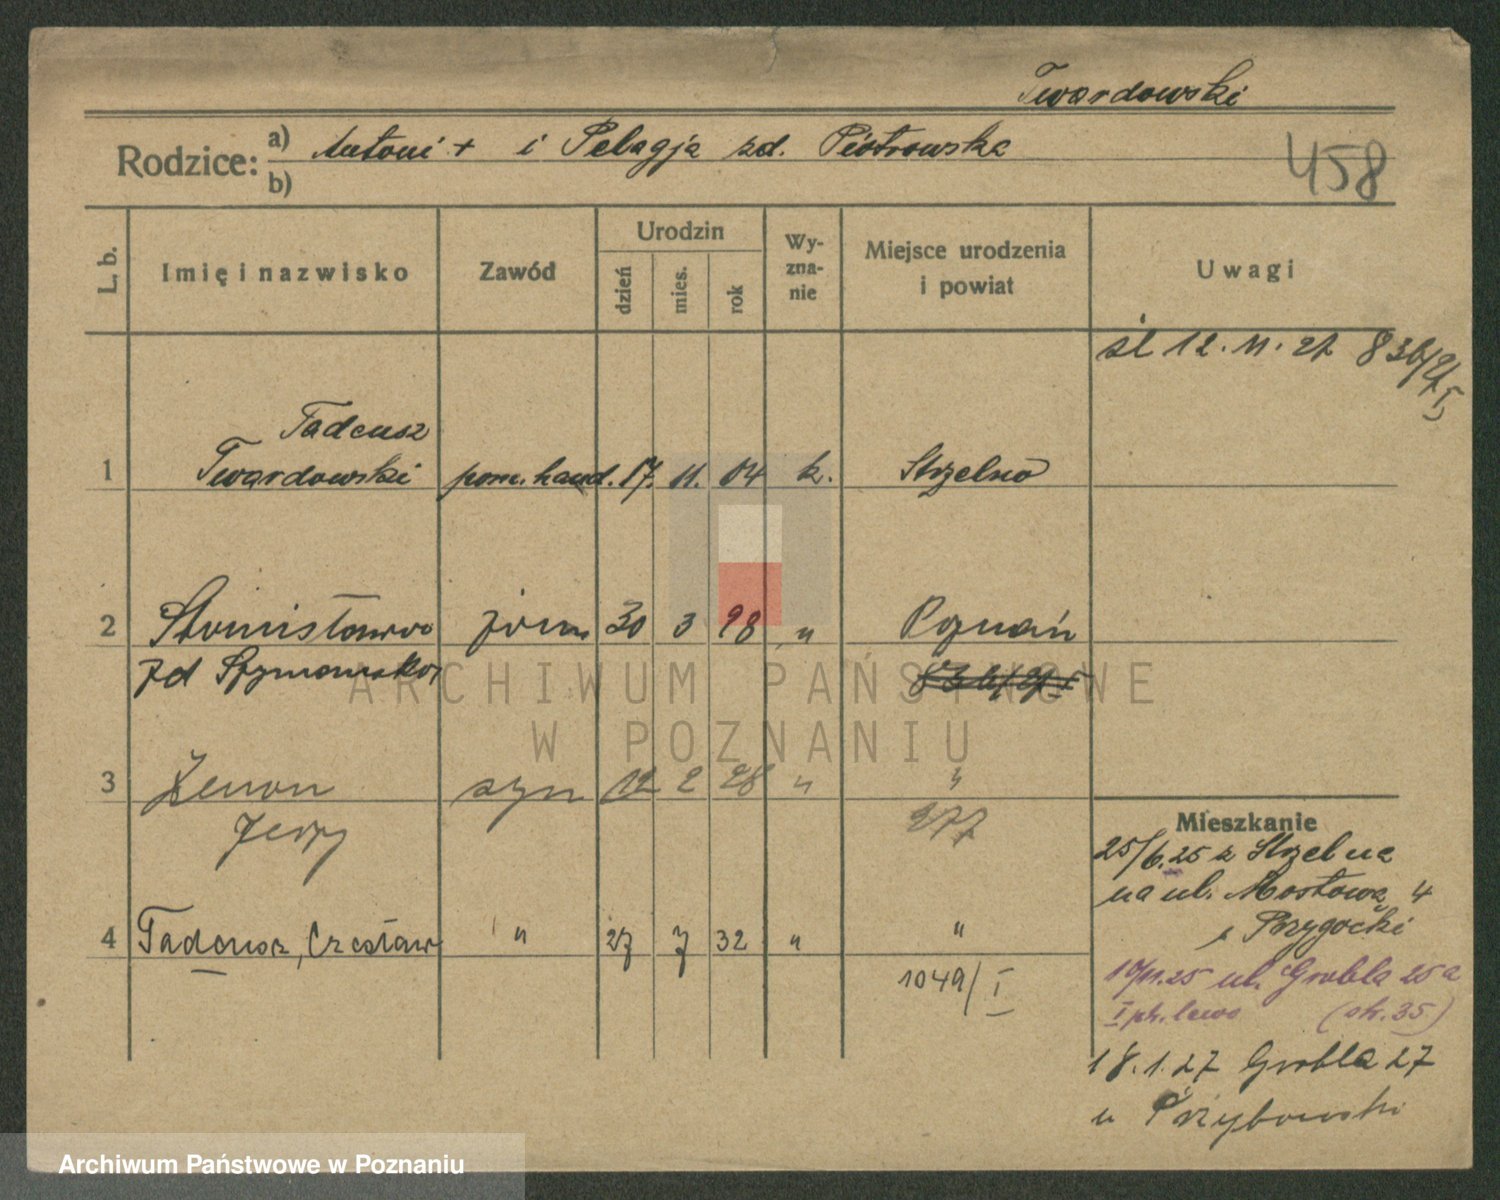 Twardowski
Rodzice: a) Antoni + i Pelagja zd. Piotrowska
b)
458
L. b. Imię i nazwisko Zawód Urodzin dzień mies. rok Wy-zna-nie Miejsce urodzenia i powiat Uwagi
śl 12. 11. 27 836/27 I
Tadeusz
1 Twardowski pom. hand. 17. 11. 04 k. Strzelno
2 Stanisława żona 30 3 98 " Poznań
zd Szymańska 836/27 I
3 Zenon syn 12 2 28 " "
Jerzy 277
Mieszkanie
25/6.25 z Strzelna
na ul. Mostowa 4
Przygocki
4 Tadeusz, Czesław " 27 7 32 " "
1049/I
10/11.25 ul. Grobla 25a
I ptr. lewo (ok. 35)
18.1.27 Grobla 27
u Przybowski
ARCHIWUM PAŃSTWOWE
W POZNANIU
Archiwum Państwowe w Poznaniu